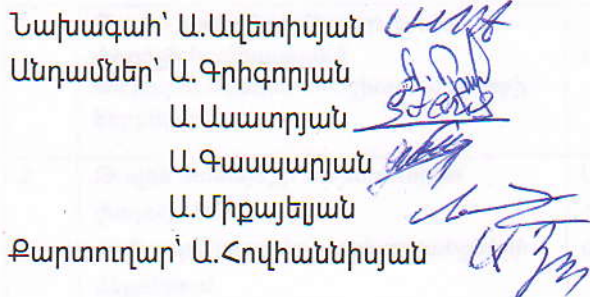 Նախագահ՝ Ա.Ավետիսյան
Անդամներ՝ Ա.Գրիգորյան
Ա.Ասատրյան
Ա.Գասպարյան
Ա.Միքայելյան
Քարտուղար՝ Ա.Հովհաննիսյան